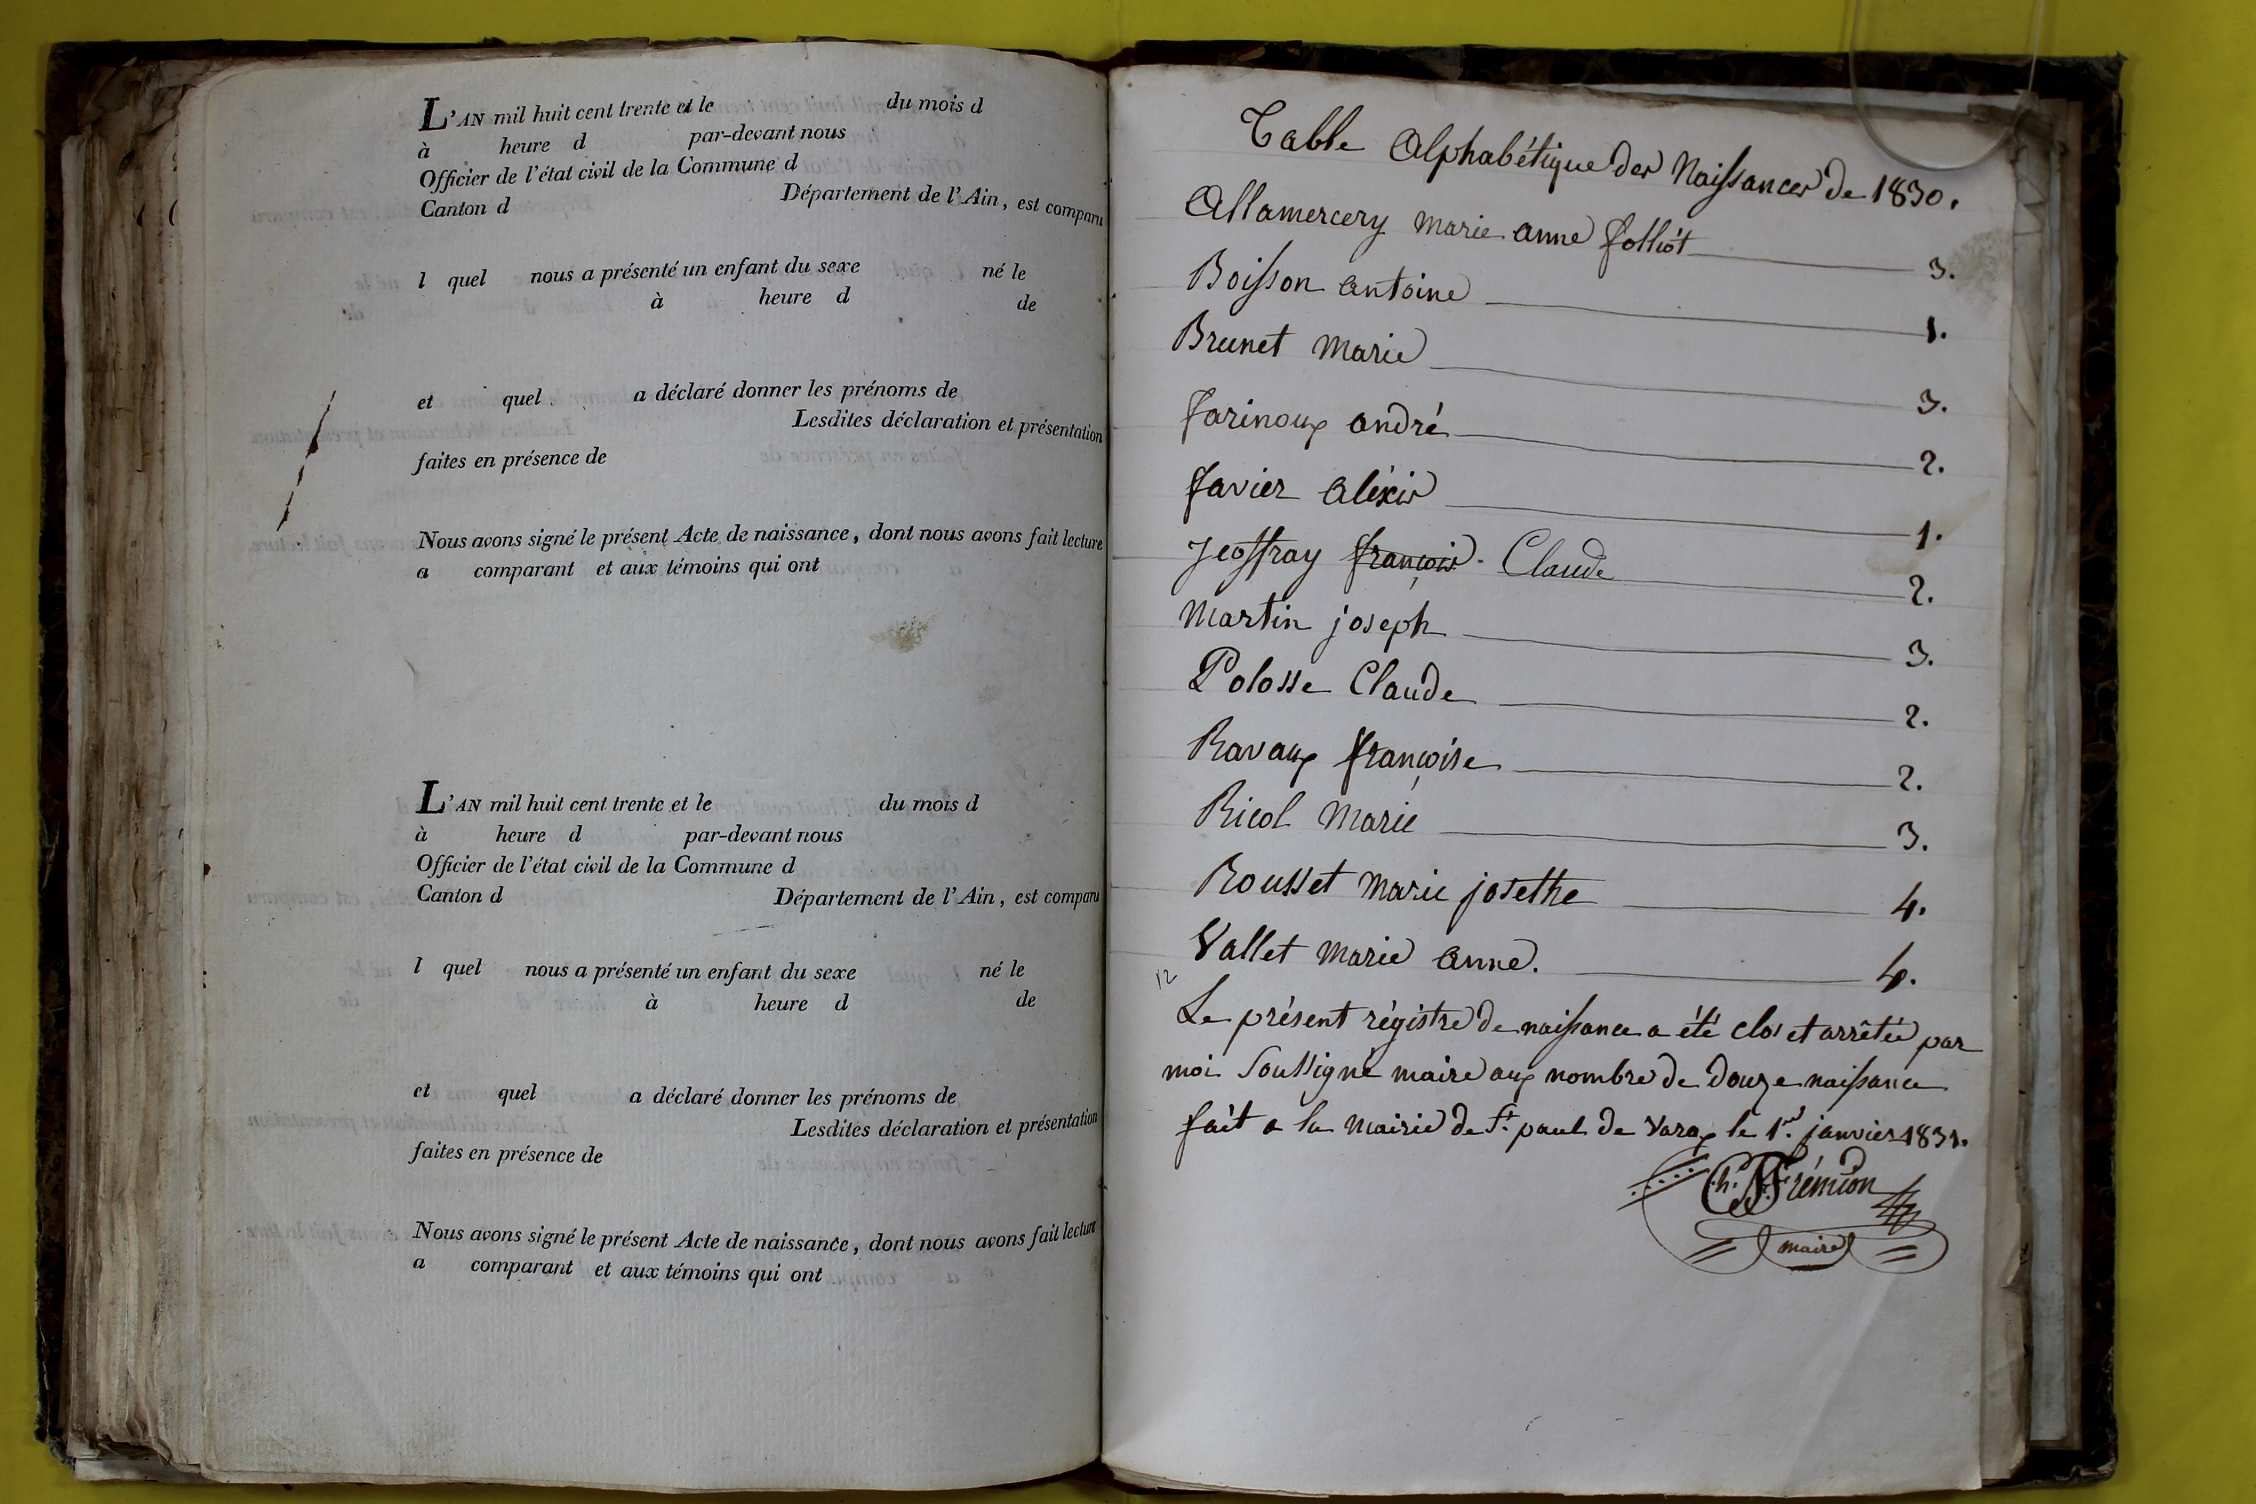 L'AN mil huit cent trente et le du mois d
à heure d par-devant nous
Officier de l'état civil de la Commune d
Canton d Département de l'Ain, est comparu
l quel nous a présenté un enfant du sexe né le
à heure d de
et quel a déclaré donner les prénoms de
Lesdites déclaration et présentation
faites en présence de
Nous avons signé le présent Acte de naissance, dont nous avons fait lecture
a comparant et aux témoins qui ont
L'AN mil huit cent trente et le du mois d
à heure d par-devant nous
Officier de l'état civil de la Commune d
Canton d Département de l'Ain, est comparu
l quel nous a présenté un enfant du sexe né le
à heure d de
et quel a déclaré donner les prénoms de
Lesdites déclaration et présentation
faites en présence de
Nous avons signé le présent Acte de naissance, dont nous avons fait lecture
a comparant et aux témoins qui ont
Table Alphabétique des Naissances de 1830.
Allamercery marie anne folliot 3.
Boisson antoine 1.
Brunet marie 3.
farinoux andré 2.
favier aléxis 1.
Jeoffray françois. Claude 2.
Martin joseph 3.
Polosse Claude 2.
Ravaux françoise 2.
Ricol Marie 3.
Rousset Marie josethe 4.
Vallet Marie anne. 4.
12
Le présent régistre de naissance a été clos et arrêtée par
moi Soussigné maire aux nombre de douze naissance
fait a la Mairie de St. paul de Varax le 1er. janvier 1831.
Ch. Frémion
maire